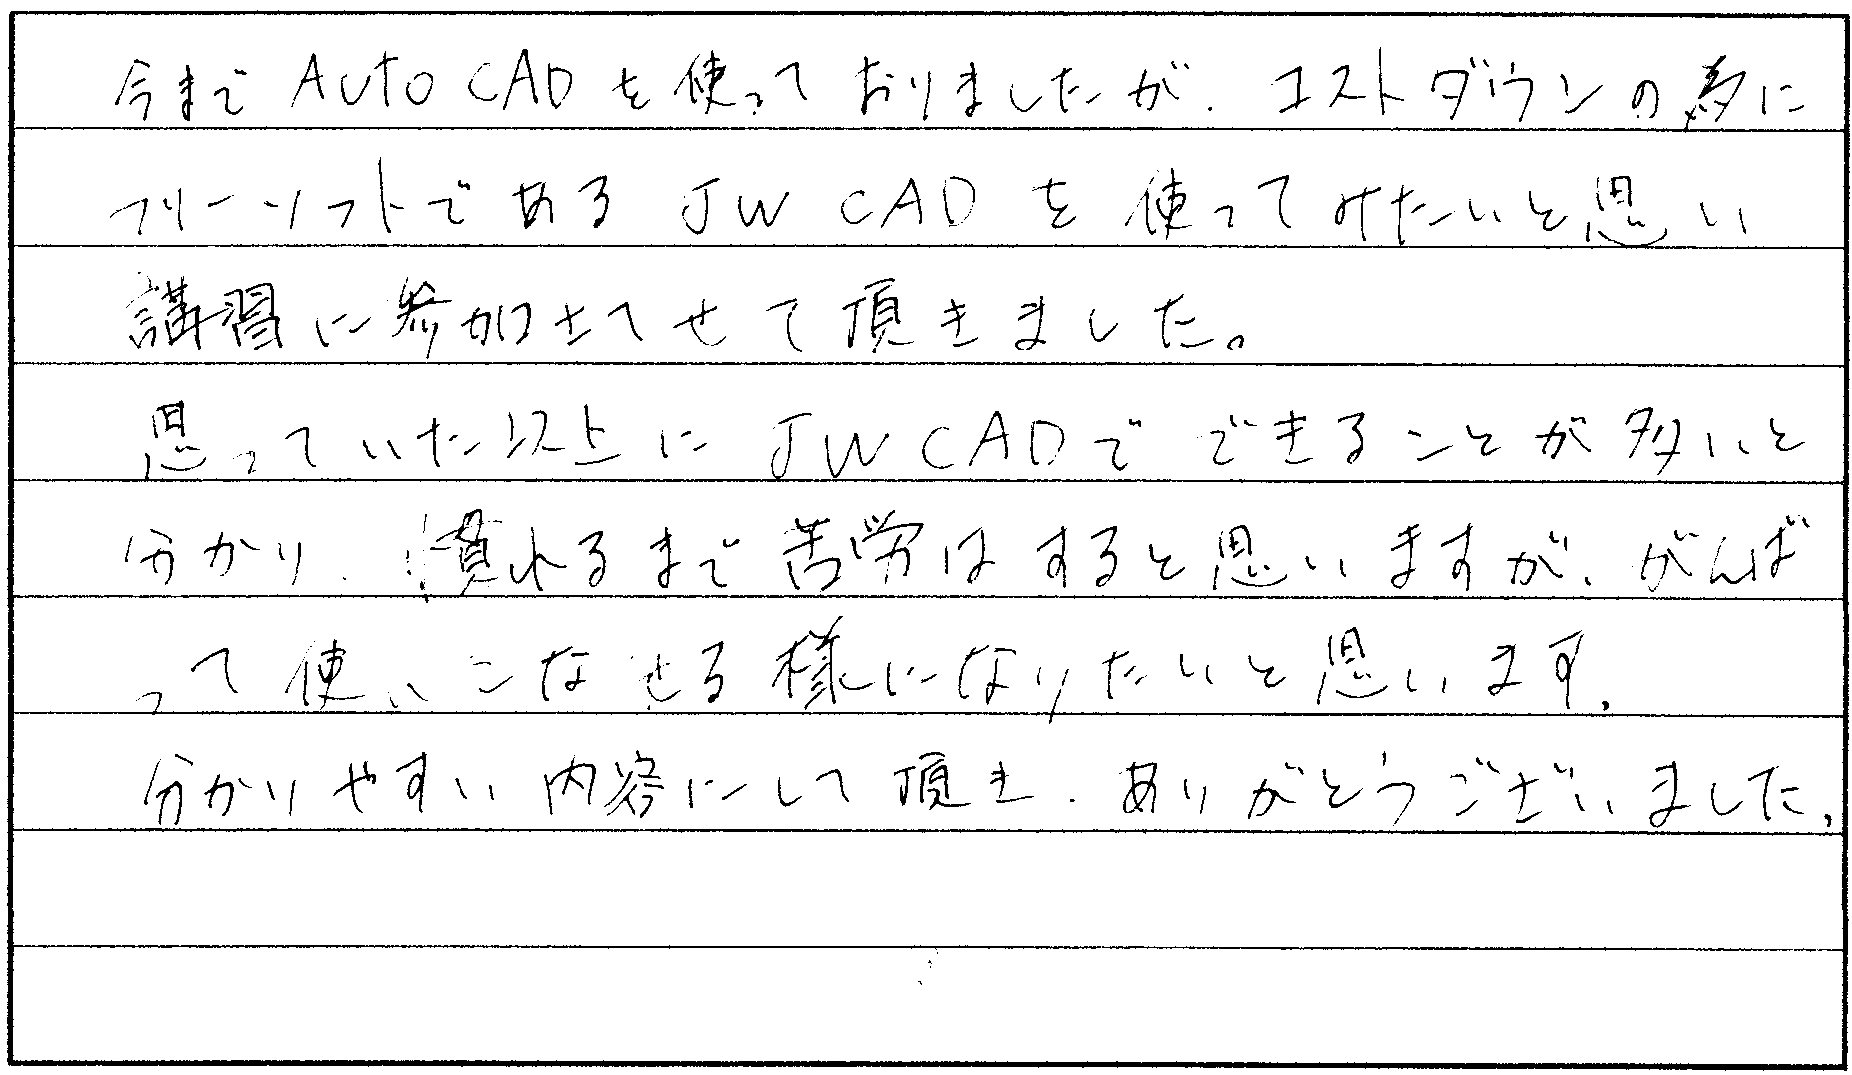 今まで AUTO CADを使っておりましたが、コストダウンの為に
フリーソフトである JW CADを使ってみたいと思い
講習に参加させて頂きました。
思っていた以上に JW CADでできることが多いと
分かり、慣れるまで苦労はすると思いますが、がんば
って使いこなせる様になりたいと思います。
分かりやすい内容にして頂き、ありがとうございました。